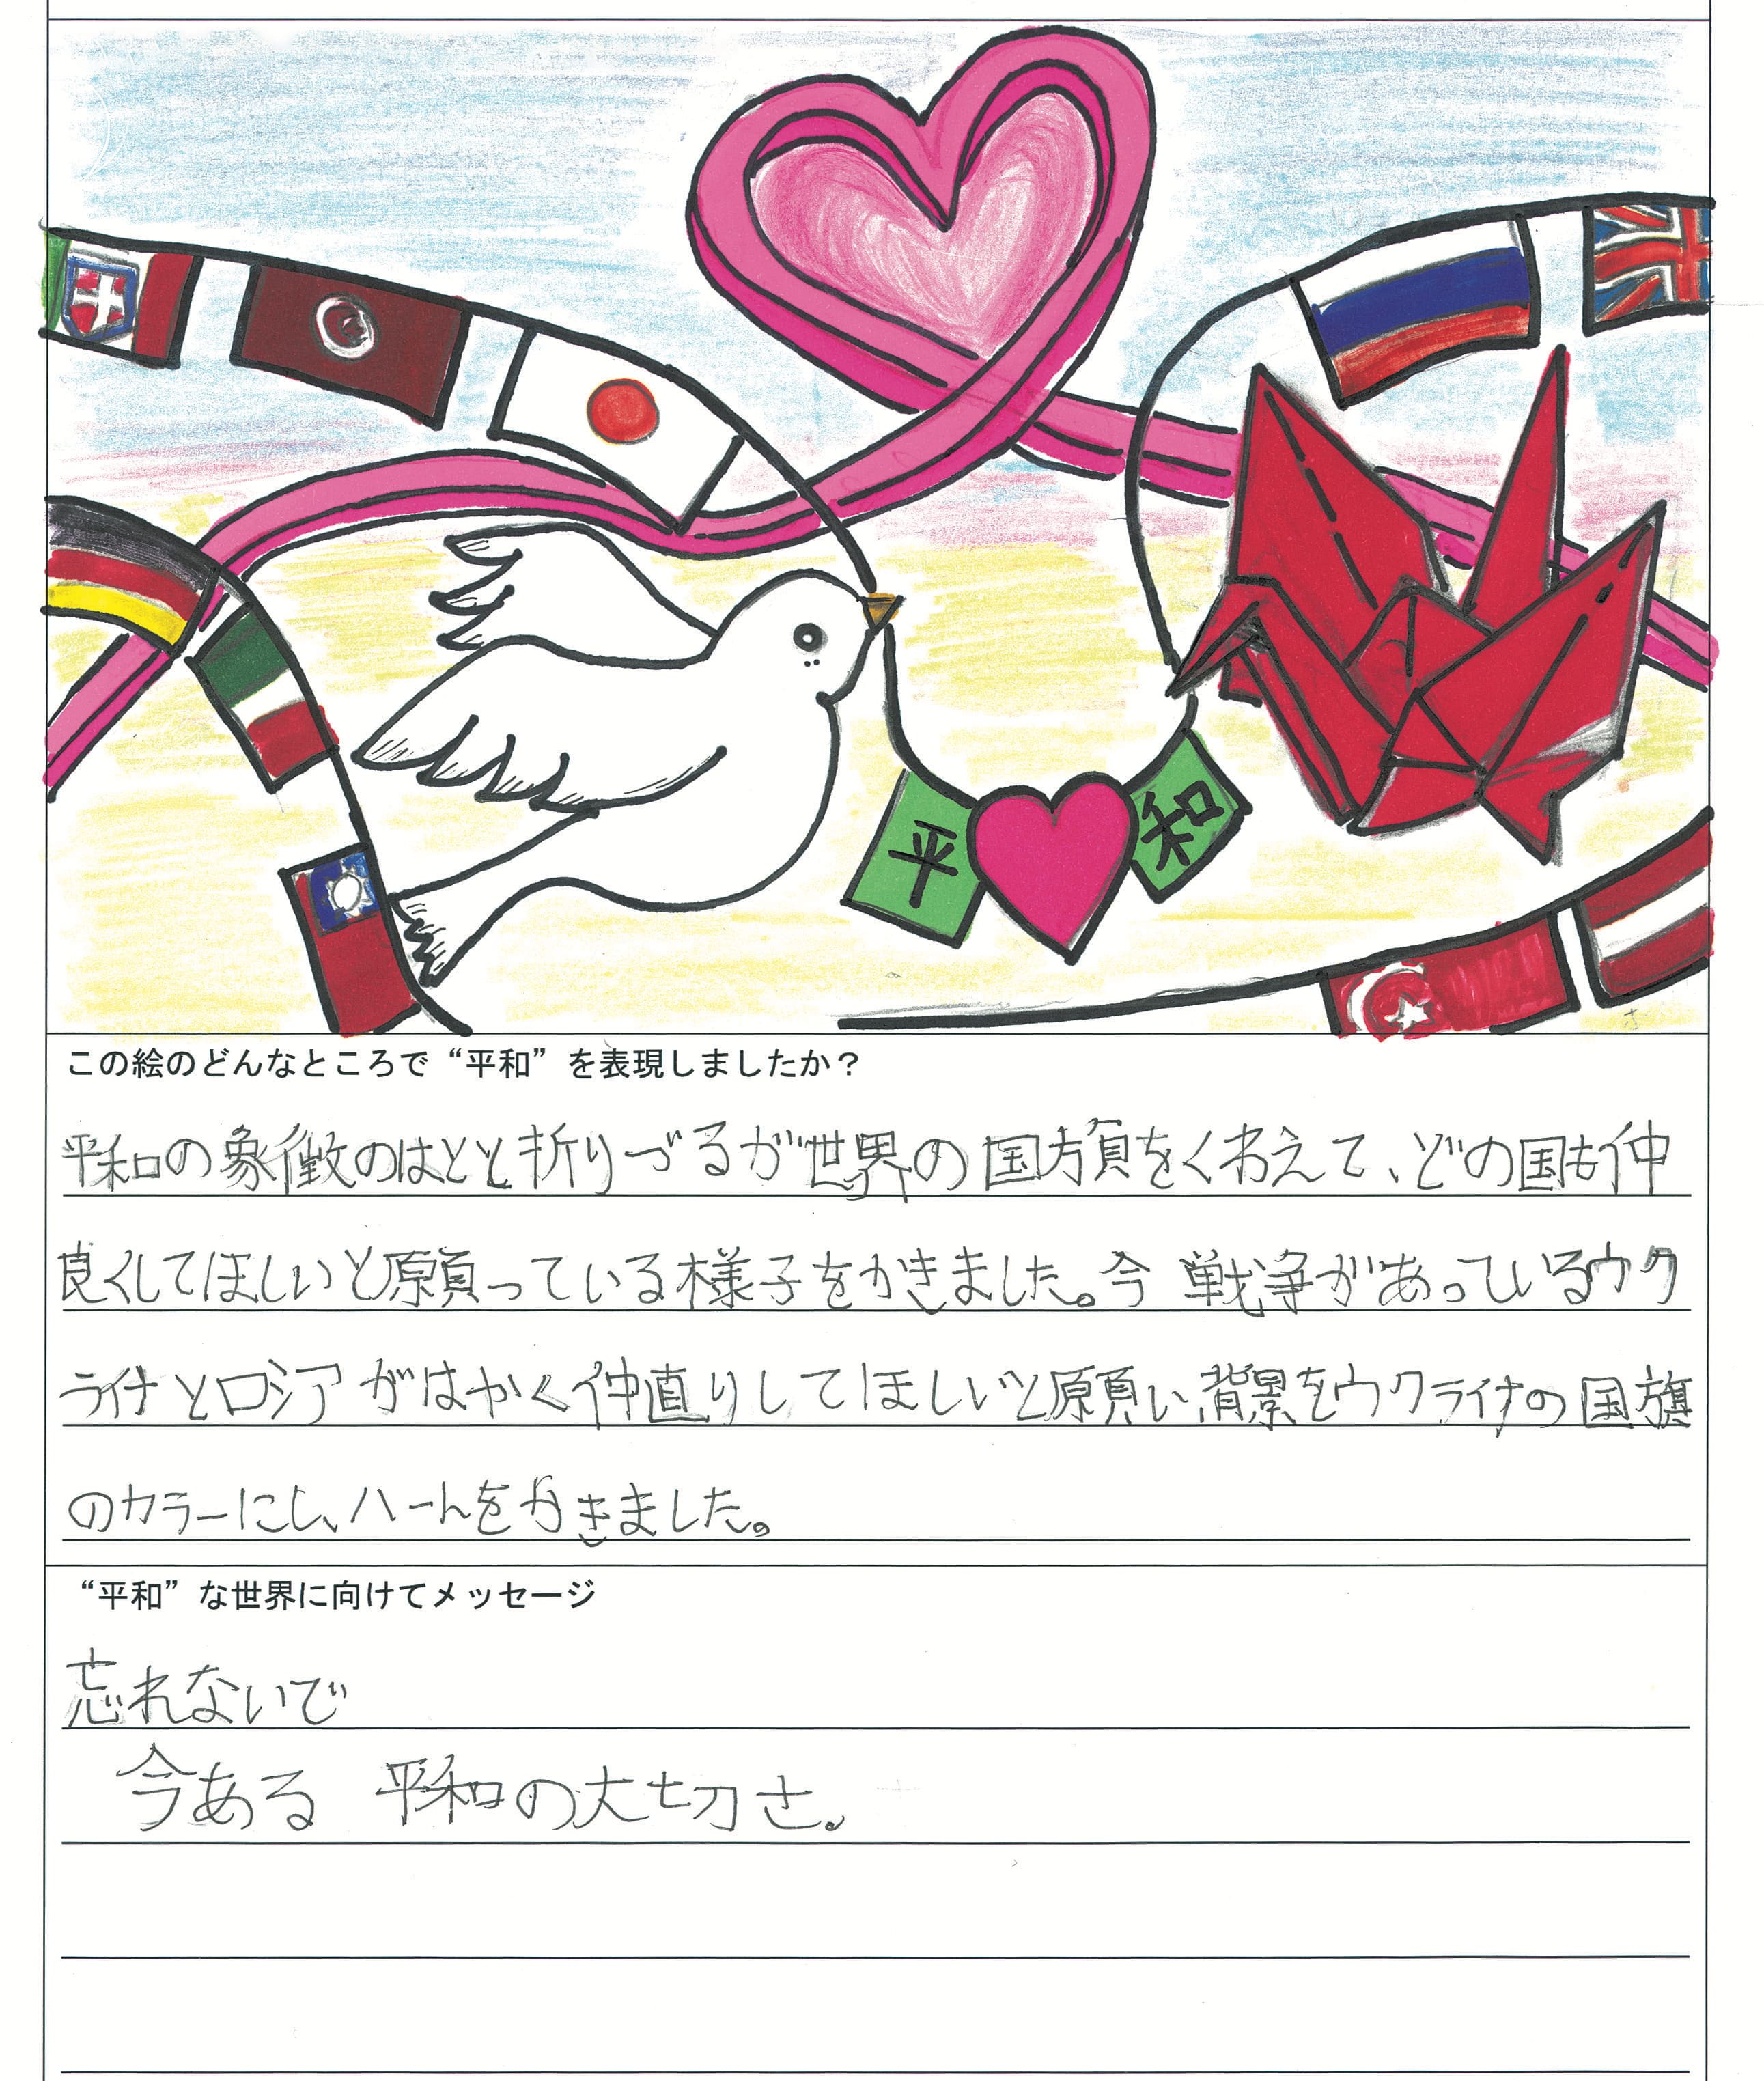 平 和
この絵のどんなところで“平和”を表現しましたか？
平和の象徴のはとと折りづるが世界の国旗をくわえて、どの国も仲
良くしてほしいと願っている様子をかきました。今 戦争があっているウク
ライナとロシアがはやく仲直りしてほしいと願い、背景をウクライナの国旗
のカラーにし、ハートをかきました。
“平和”な世界に向けてメッセージ
忘れないで
今ある 平和の大切さ。